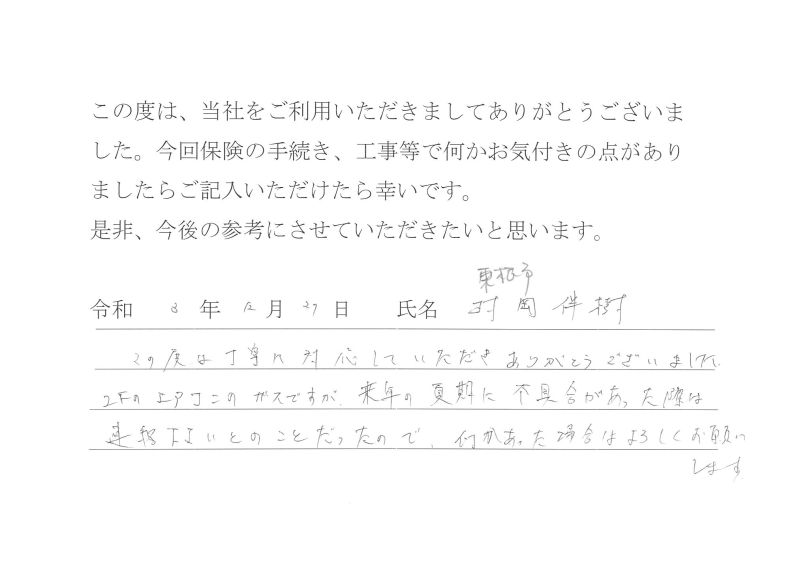 この度は、当社をご利用いただきましてありがとうございま
した。今回保険の手続き、工事等で何かお気付きの点があり
ましたらご記入いただけたら幸いです。
是非、今後の参考にさせていただきたいと思います。
東根市
令和 3 年 12 月 27 日 氏名 村岡 伴樹
この度は丁寧に対応していただきありがとうございました。
2Fのエアコンのガスですが、来年の夏期に不具合があった際は
連絡よいとのことだったので、何かあった場合はよろしくお願い
します